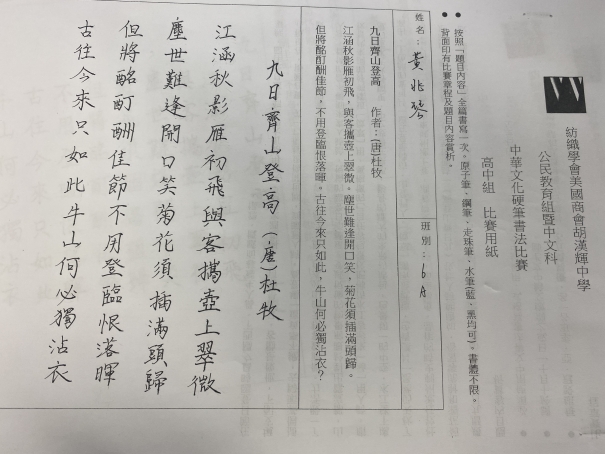 紡織學會美國商會胡漢輝中學
公民教育組暨中文科
中華文化硬筆書法比賽
高中組 比賽用紙
按照「題目內容」全篇書寫一次。原子筆、鋼筆、走珠筆、水筆(藍、黑均可)。書體不限。
背面印有比賽章程及題目內容賞析。
姓名:黃兆琴 班別:6A
九日齊山登高 作者:(唐)杜牧
江涵秋影雁初飛,與客攜壺上翠微。塵世難逢開口笑,菊花須插滿頭歸。
但將酩酊酬佳節,不用登臨恨落暉。古往今來只如此,牛山何必獨沾衣?
九日齊山登高 (唐)杜牧
江涵秋影雁初飛與客攜壺上翠微
塵世難逢開口笑菊花須插滿頭歸
但將酩酊酬佳節不用登臨恨落暉
古往今來只如此牛山何必獨沾衣